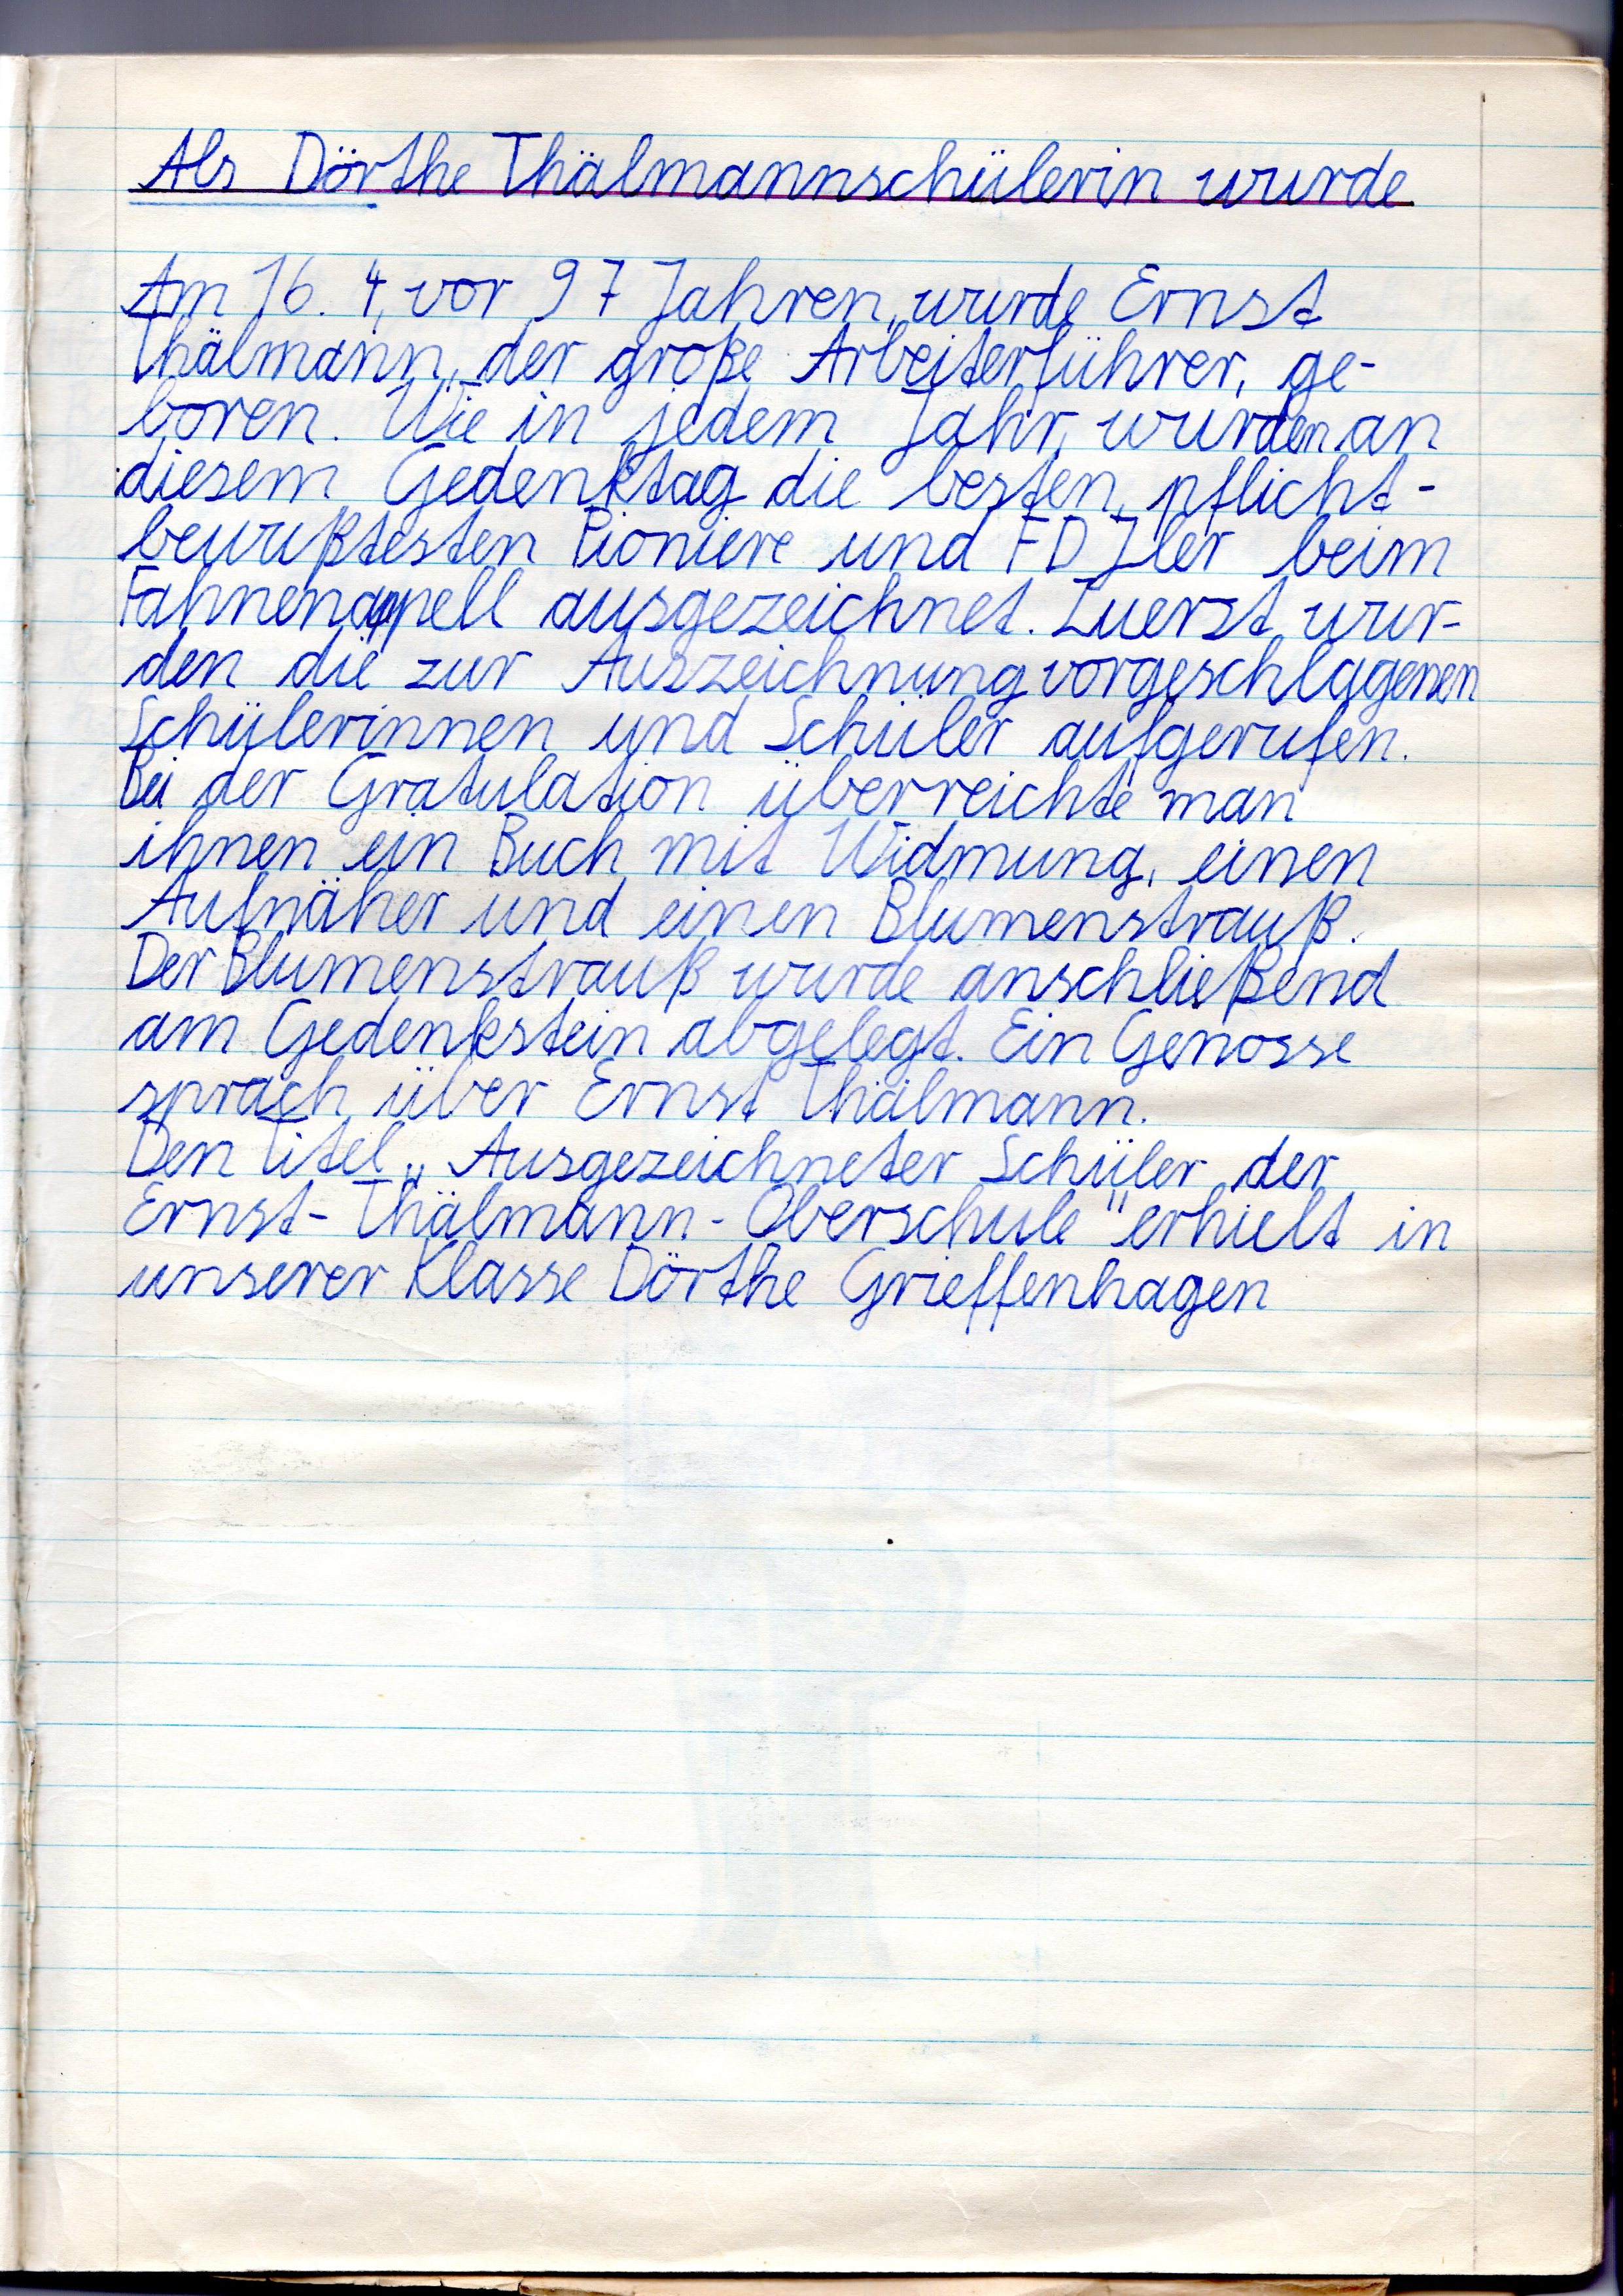 Als Dörthe Thälmannschülerin wurde
Am 16. 4, vor 97 Jahren, wurde Ernst
Thälmann, der große Arbeiterführer, ge-
boren. Wie in jedem Jahr, wurden an
diesem Gedenktag die besten, pflicht-
bewußtesten Pioniere und FDJler beim
Fahnenappell ausgezeichnet. Zuerst wur-
den die zur Auszeichnung vorgeschlagenen
Schülerinnen und Schüler aufgerufen.
Bei der Gratulation überreichte man
ihnen ein Buch mit Widmung, einen
Aufnäher und einen Blumenstrauß.
Der Blumenstrauß wurde anschließend
am Gedenkstein abgelegt. Ein Genosse
sprach über Ernst Thälmann.
Den Titel „Ausgezeichneter Schüler der
Ernst-Thälmann-Oberschule" erhielt in
unserer Klasse Dörthe Grieffenhagen